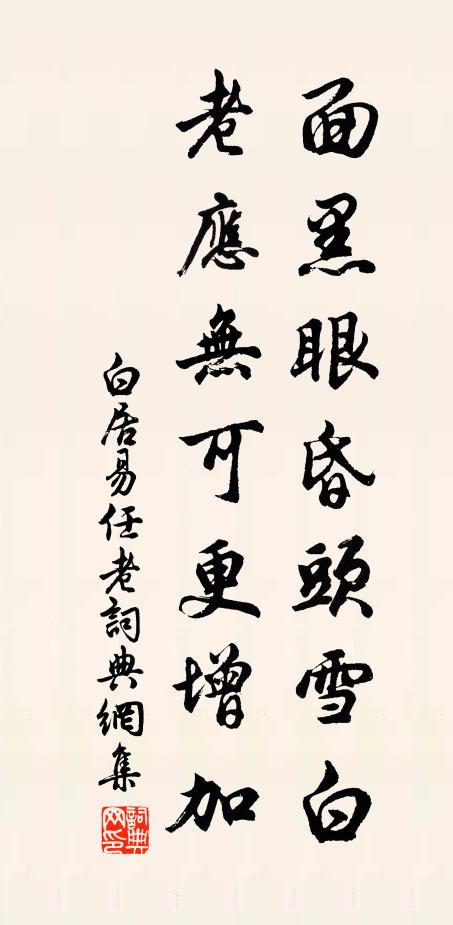 面黑眼昏頭雪白
老應無可更增加
白居易任老詞典網集
詞典網印